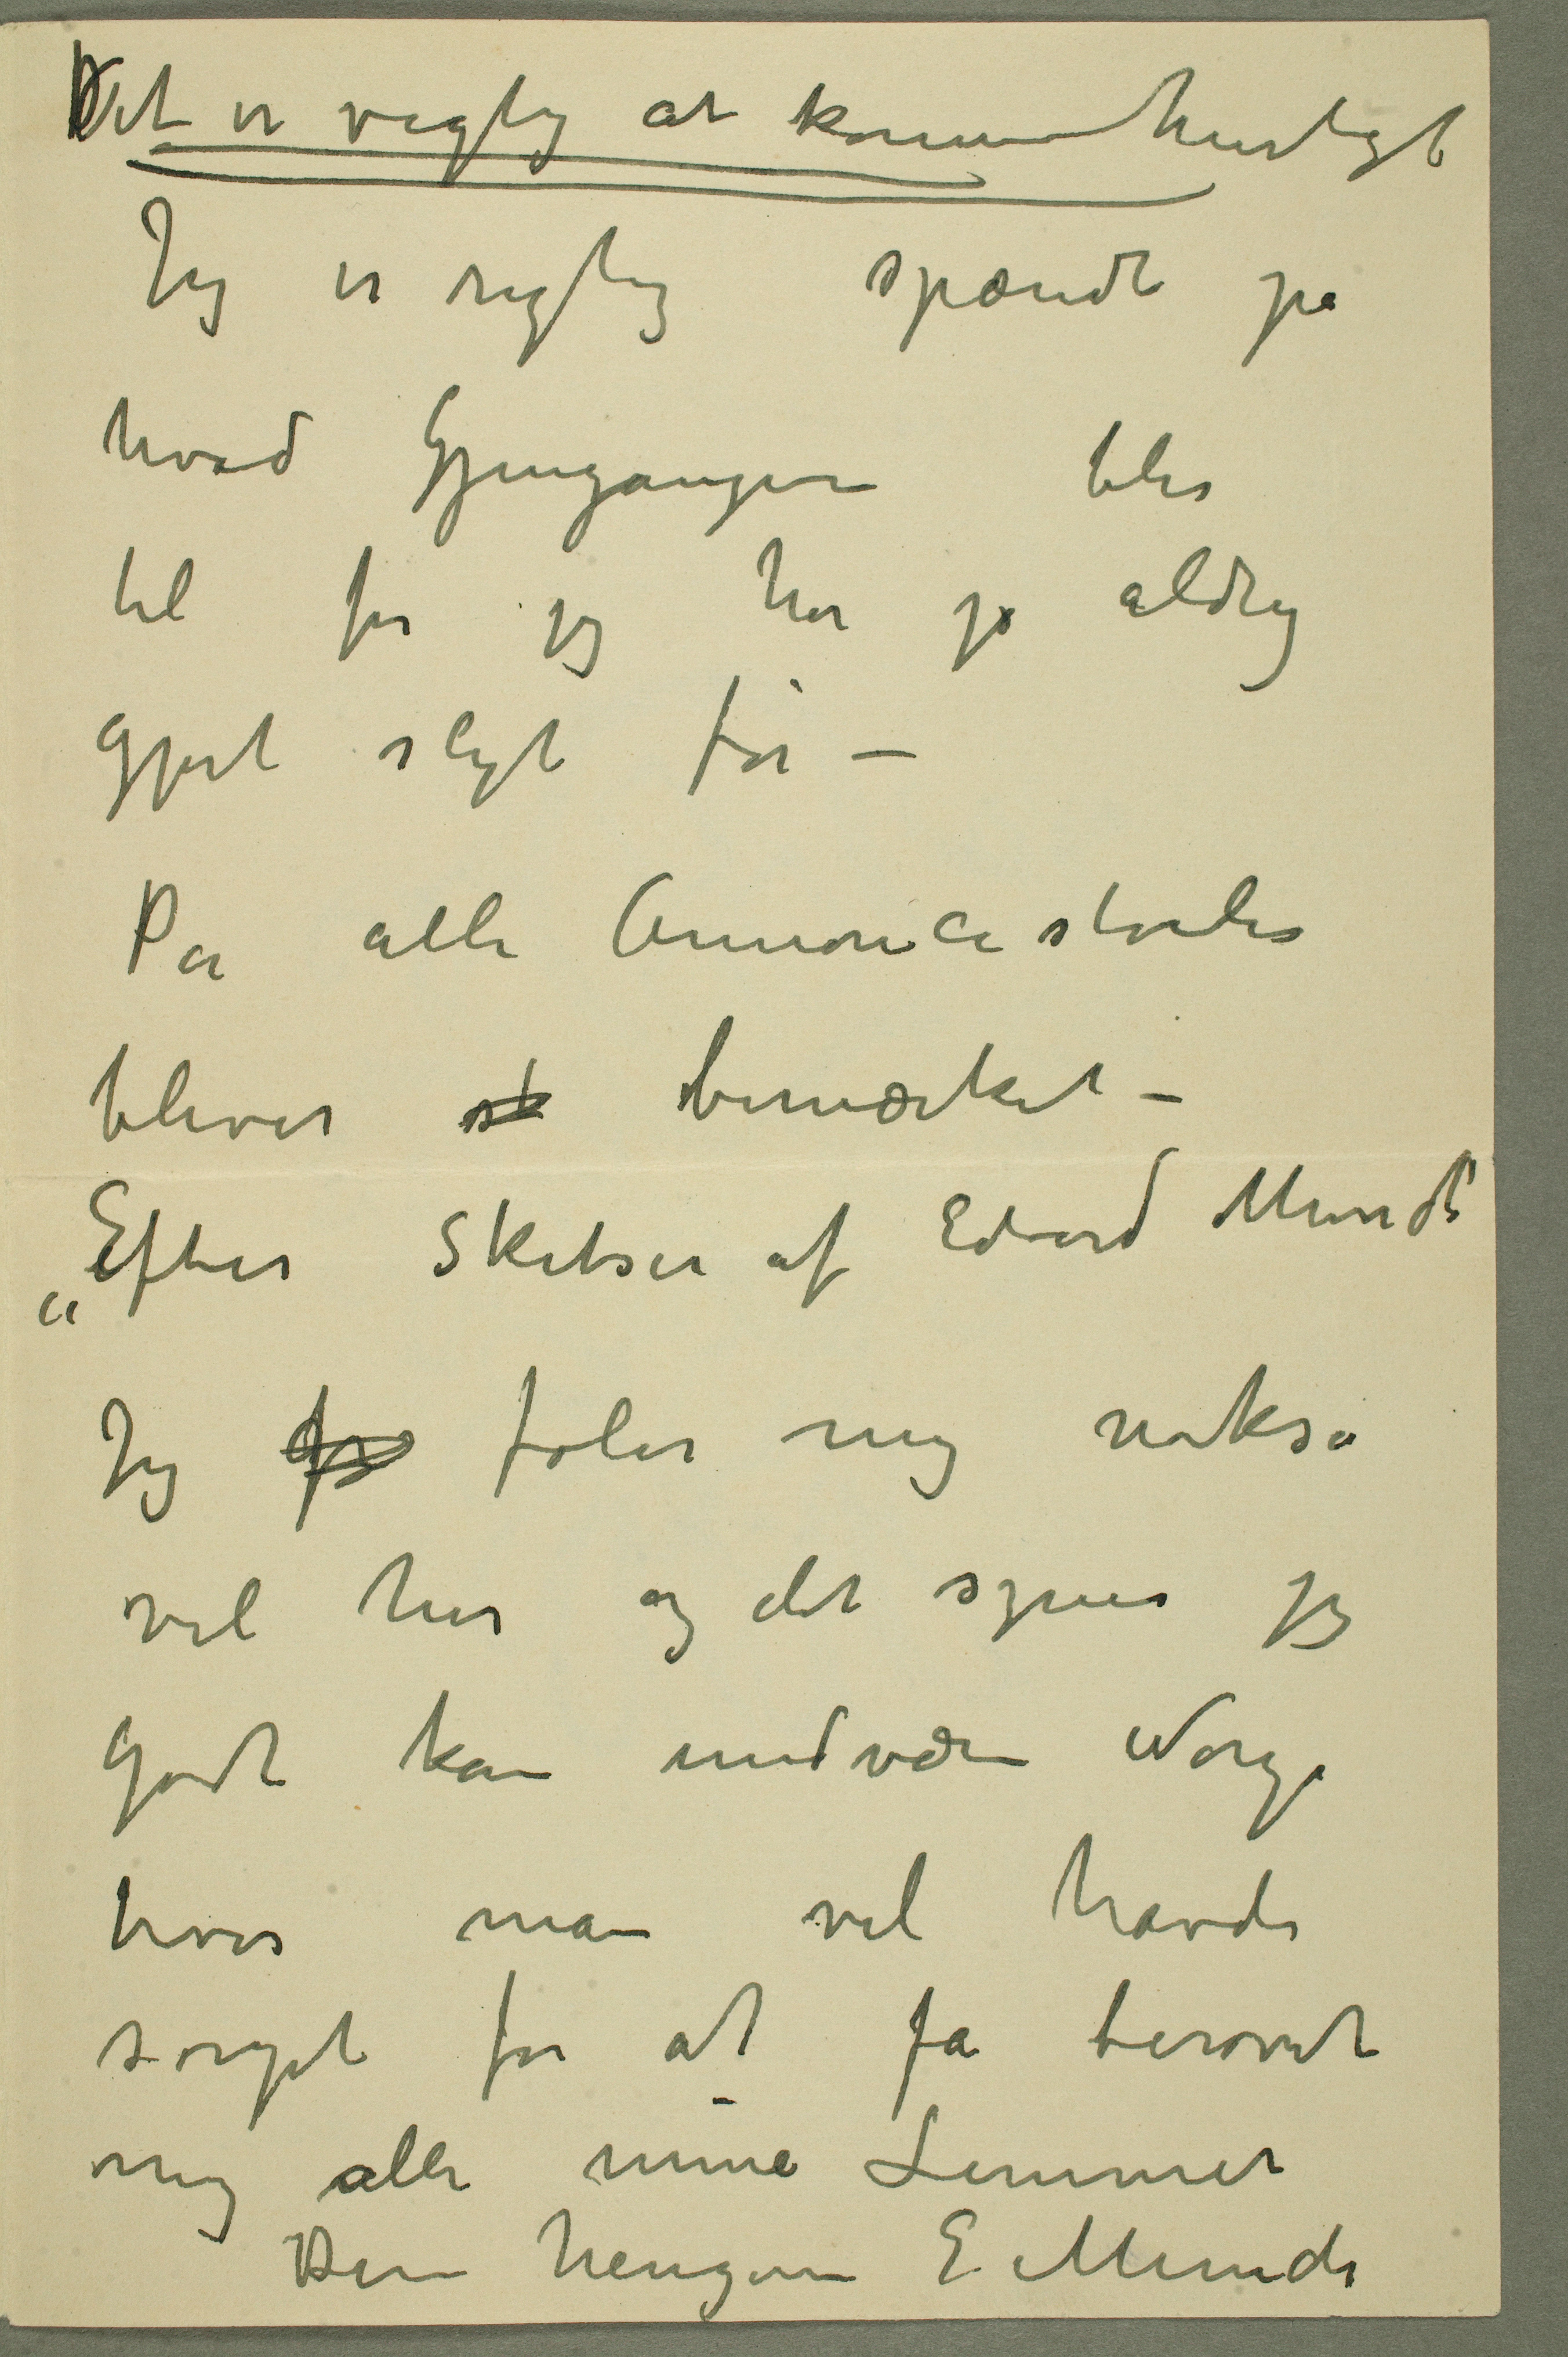 Det er vigtig at komme hurtigt
Jeg er rigtig spændt på
hvad Gjengangere blir
til for jeg har jo aldrig
gjort sligt før –
På alle Annoncestæder
bliver st bemærket –
„Efter Skitser af Edvard Munch“
Jeg fø føler mig nokså
vel her og det synes jeg
godt kan undvære Norge
hvor man vel havde
sørget for at få berøvet
mig alle mine Lemmer
Din hengivne E. Munch